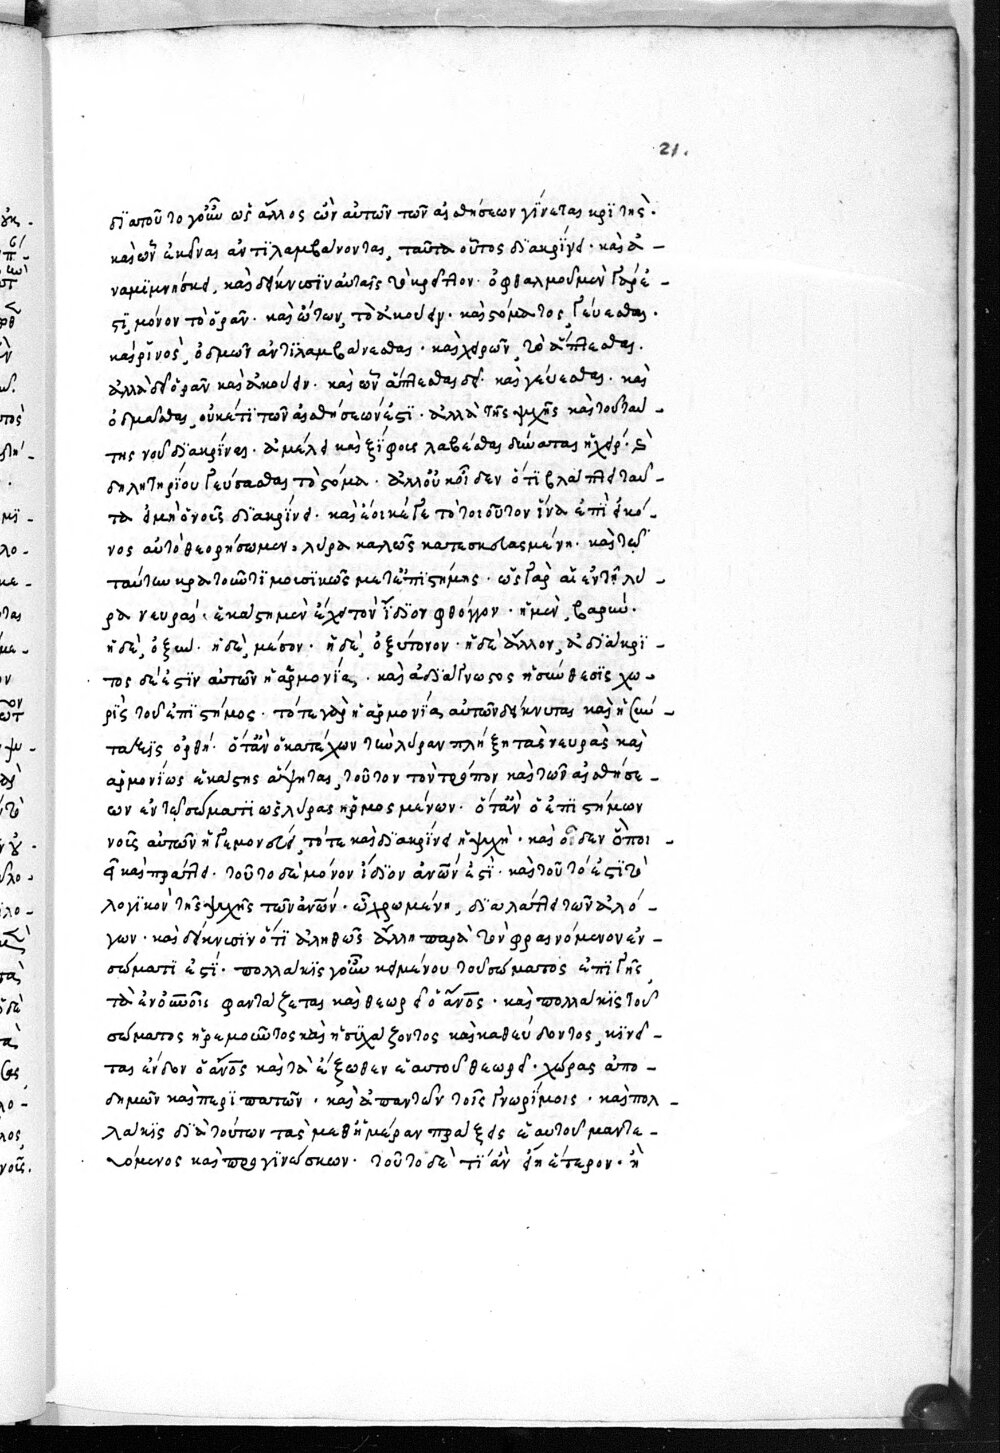 21.
διαποῦ το γοῦν ὡς ἄλλος ὢν αὐτῶν τῶν αἰσθήσεων γίνεται κριτής.
καὶ ὧν ἐκεῖναι ἀντιλαμβάνονται, ταῦτα οὗτος διακρίνει· καὶ ἀ-
ναμιμνήσκει, καὶ δείκνυσιν αὐταῖς τὸ κρεῖττον· ὀφθαλμοῦ μὲν γάρ ἐ-
στι, μόνον τὸ ὁρᾶν· καὶ ὤτων, τὸ ἀκούειν· καὶ στόματος, γεύεσθαι·
καὶ ῥινὸς, ὀδμῶν ἀντιλαμβάνεσθαι· καὶ χειρῶν, τὸ ἅπτεσθαι.
ἀλλὰ δεῖ ὁρᾶν καὶ ἀκούειν· καὶ ὧν ἅπτεσθαι δεῖ· καὶ γεύεσθαι· καὶ
ὀδμᾶσθαι, οὐκέτι τῶν αἰσθήσεών ἐστι· ἀλλὰ τῆς ψυχῆς καὶ τοῦ ταύ-
της νοῦ διακρῖναι· ἀμέλει καὶ ξίφους λαβέσθαι δύναται ἡ χείρ· καὶ
δηλητηρίου γεύσασθαι τὸ στόμα· ἀλλ' οὐκ οἶδεν ὅτι βλάπτει ταῦ-
τα εἰ μὴ ὁ νοῦς διακρίνει· καὶ ἔοικέ γε τὸ τοιοῦτον ἵνα ἐπὶ εἰκό-
νος αὐτὸ θεορήσωμεν· λύρα καλῶς κατεσκευασμένῃ· καὶ τῷ
ταύτην κρατοῦντι μουσικῶς μετ' ἐπιστήμης· ὡς γὰρ αἱ ἐν τῇ λύ-
ρα νευραί· ἑκάστη μὲν ἔχει τὸν ἴδιον φθόγγον· ἡ μὲν, βαρύν·
ἡ δὲ, ὀξύν· ἡ δὲ, μέσον· ἡ δὲ, ὀξύτονον· ἡ δὲ ἄλλον, ἀδιάκρι-
τος δέ ἐστιν αὐτῶν ἡ ἁρμονία, καὶ ἀδιάγνωστος ἡ σύνθεσις χω-
ρὶς τοῦ ἐπιστήμονος· τότε γὰρ ἡ ἁρμονία αὐτῶν δείκνυται καὶ ἡ σύν
ταξις ὀρθή· ὅτ' ἂν ὁ κατέχων τὴν λύραν πλήξῃ τὰς νευρὰς καὶ
ἁρμονίως ἑκάστης ἅψηται, τοῦτον τὸν τρόπον καὶ τῶν αἰσθήσε-
ων ἐν τῷ σώματι ὡς λύρας ἡρμοσμένων· ὅτ' ἂν ὁ ἐπιστήμων
νοῦς αὐτῶν ἡγεμονεύει, τότε καὶ διακρίνει ἡ ψυχὴ· καὶ οἶδεν ὃ ποι-
εῖ καὶ πράττει· τοῦτο δὲ μόνον ἴδιον ἀνῶν ἐστὶ· καὶ τοῦτό ἐστι τὸ
λογικὸν τῆς ψυχῆς τῶν ἀνῶν· ᾧ χρωμένη, διαλάττει τῶν ἀλό-
γων· καὶ δείκνυσιν ὅτι ἀληθῶς ἄλλη παρὰ τὸν φαινόμενον ἐν-
σώματι ἐστί· πολλάκις γοῦν κειμένου τοῦ σώματος ἐπὶ γῆς,
τὰ ἐν οὐνοῖς φαντάζεται καὶ θεωρεῖ ὁ ἄνος· καὶ πολλάκις τοῦ
σώματος ἠρεμοῦντος καὶ ἡσυχάζοντος καὶ καθεύδοντος, κινεῖ-
ται ἔνδον ὁ ἄνος καὶ τὰ ἔξωθεν ἑαυτοῦ θεωρεῖ· χώρας ἀπο-
δημῶν καὶ περιπατῶν· καὶ ἀπαντῶν τοῖς γνωρίμοις· καὶ πολ-
λάκις διὰ τούτων τὰς μεθ' ἡμέραν πράξεις ἑαυτοῦ μαντε-
υόμενος καὶ προγινώσκων· τοῦτο δὲ τί ἂν εἴη ἕτερον· ἢ